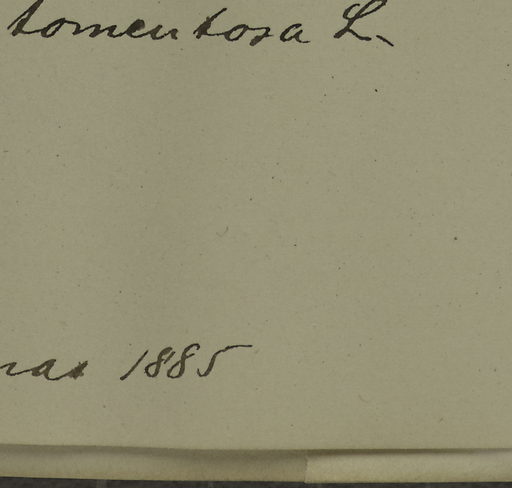 tomentosa L.
1885